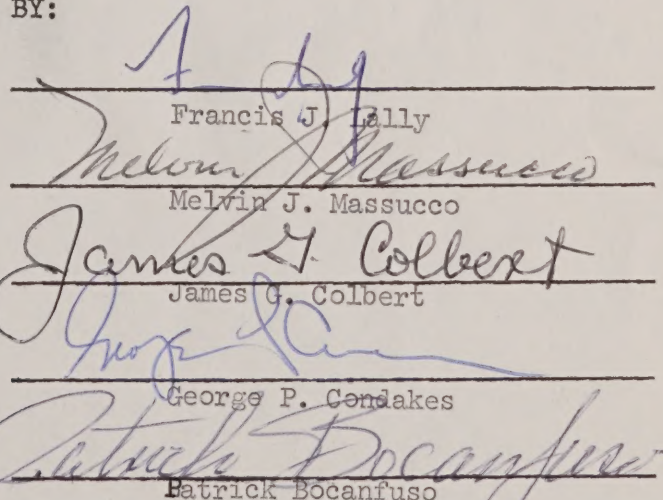 BY:
Francis J. Lally
Melvin J. Massucco
Melvin J. Massucco
James G. Colbert
James G. Colbert
George P. Condakes
Patrick Bocanfuso
Patrick Bocanfuso